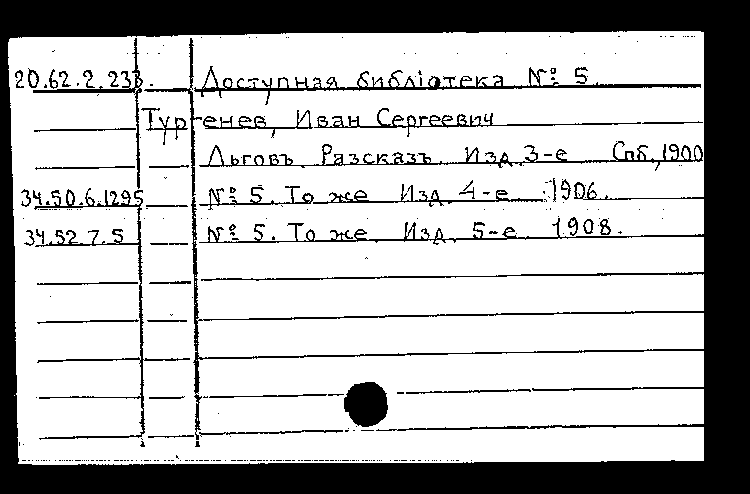 20.62.2.233. Доступная библіотека № 5.
Тургенев, Иван Сергеевич
Льговъ. Разсказъ. Изд. 3-е Спб., 1900
34.50.6.1295 № 5. То же Изд. 4-е 1906.
34.52.7.5 № 5. То же. Изд. 5-е 1908.